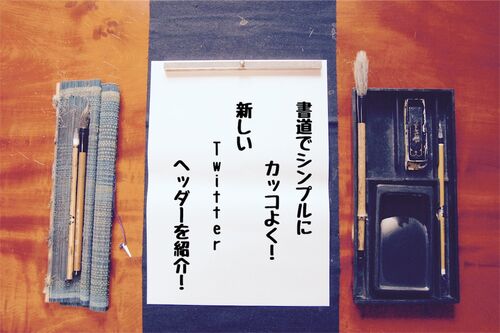 書道でシンプルに
カッコよく！
新しい
Twitter
ヘッダーを紹介！